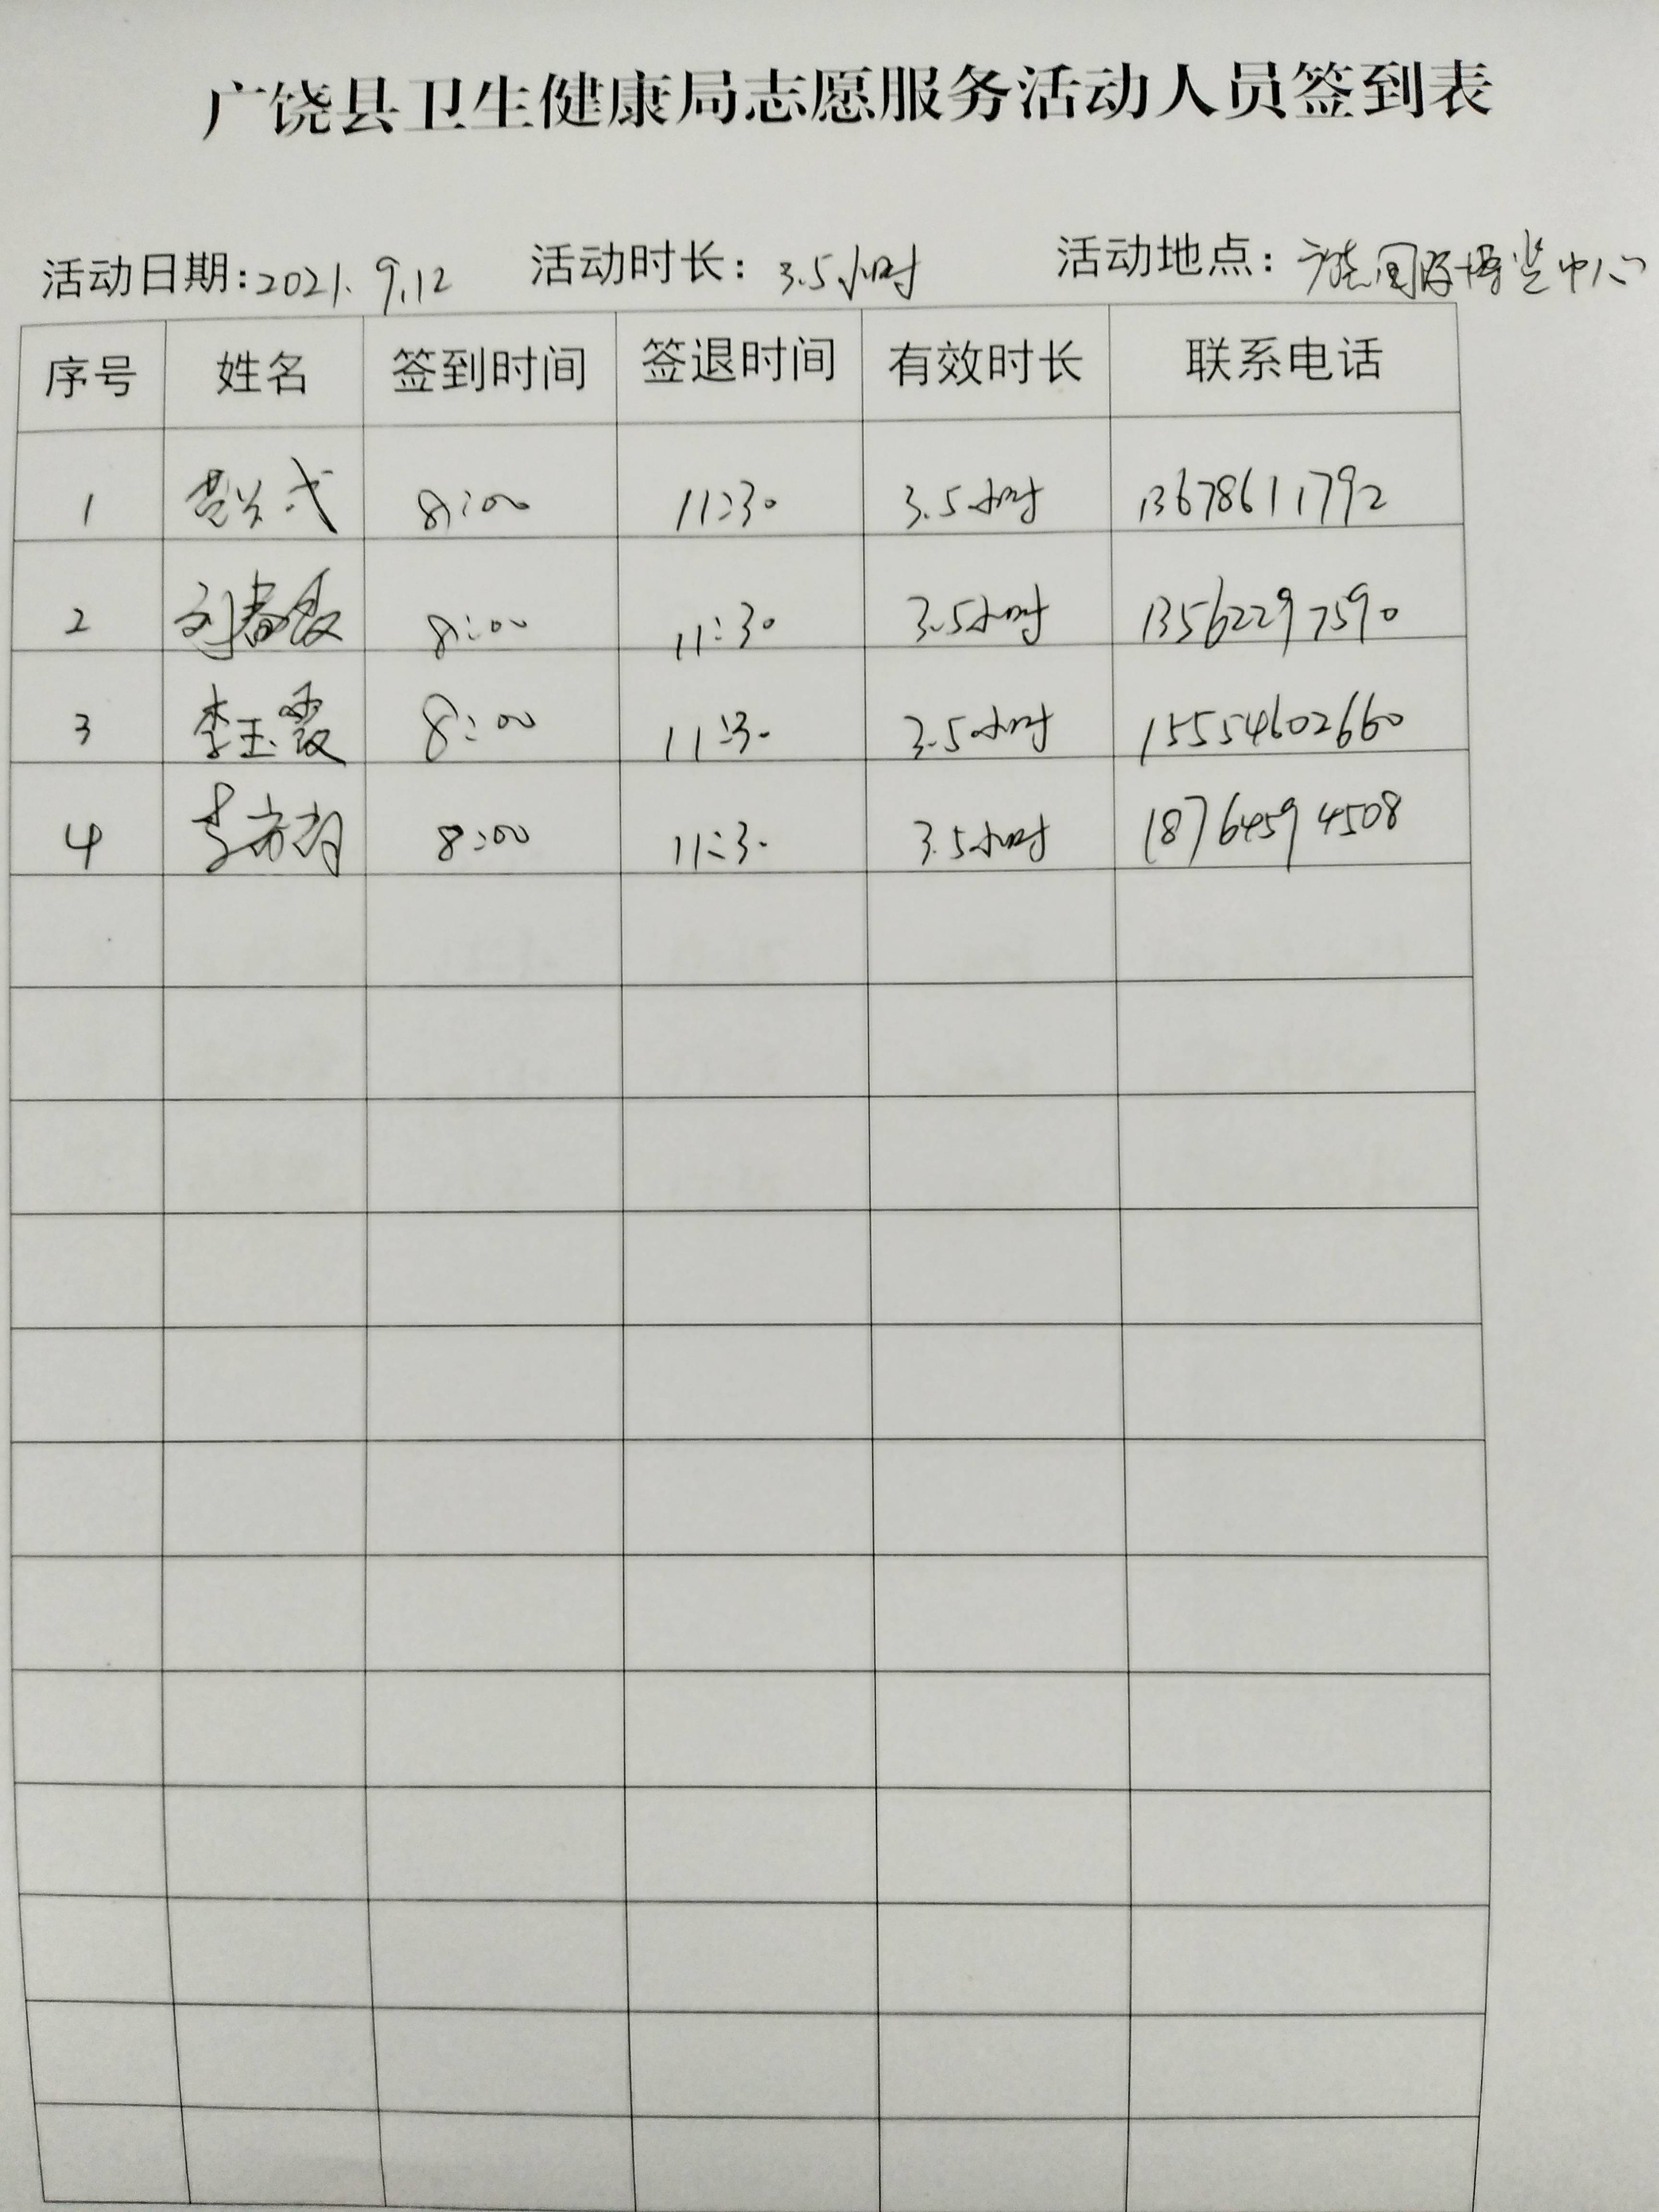 广饶县卫生健康局志愿服务活动人员签到表
活动日期:2021.9.12 活动时长:3.5小时 活动地点:广饶国际博览中心
序号 姓名 签到时间 签退时间 有效时长 联系电话
1 8:00 11:30 3.5小时 13678611792
2 刘春霞 8:00 11:30 3.5小时 13562297590
3 李玉霞 8:00 11:30 3.5小时 15554602660
4 8:00 11:30 3.5小时 18764594508